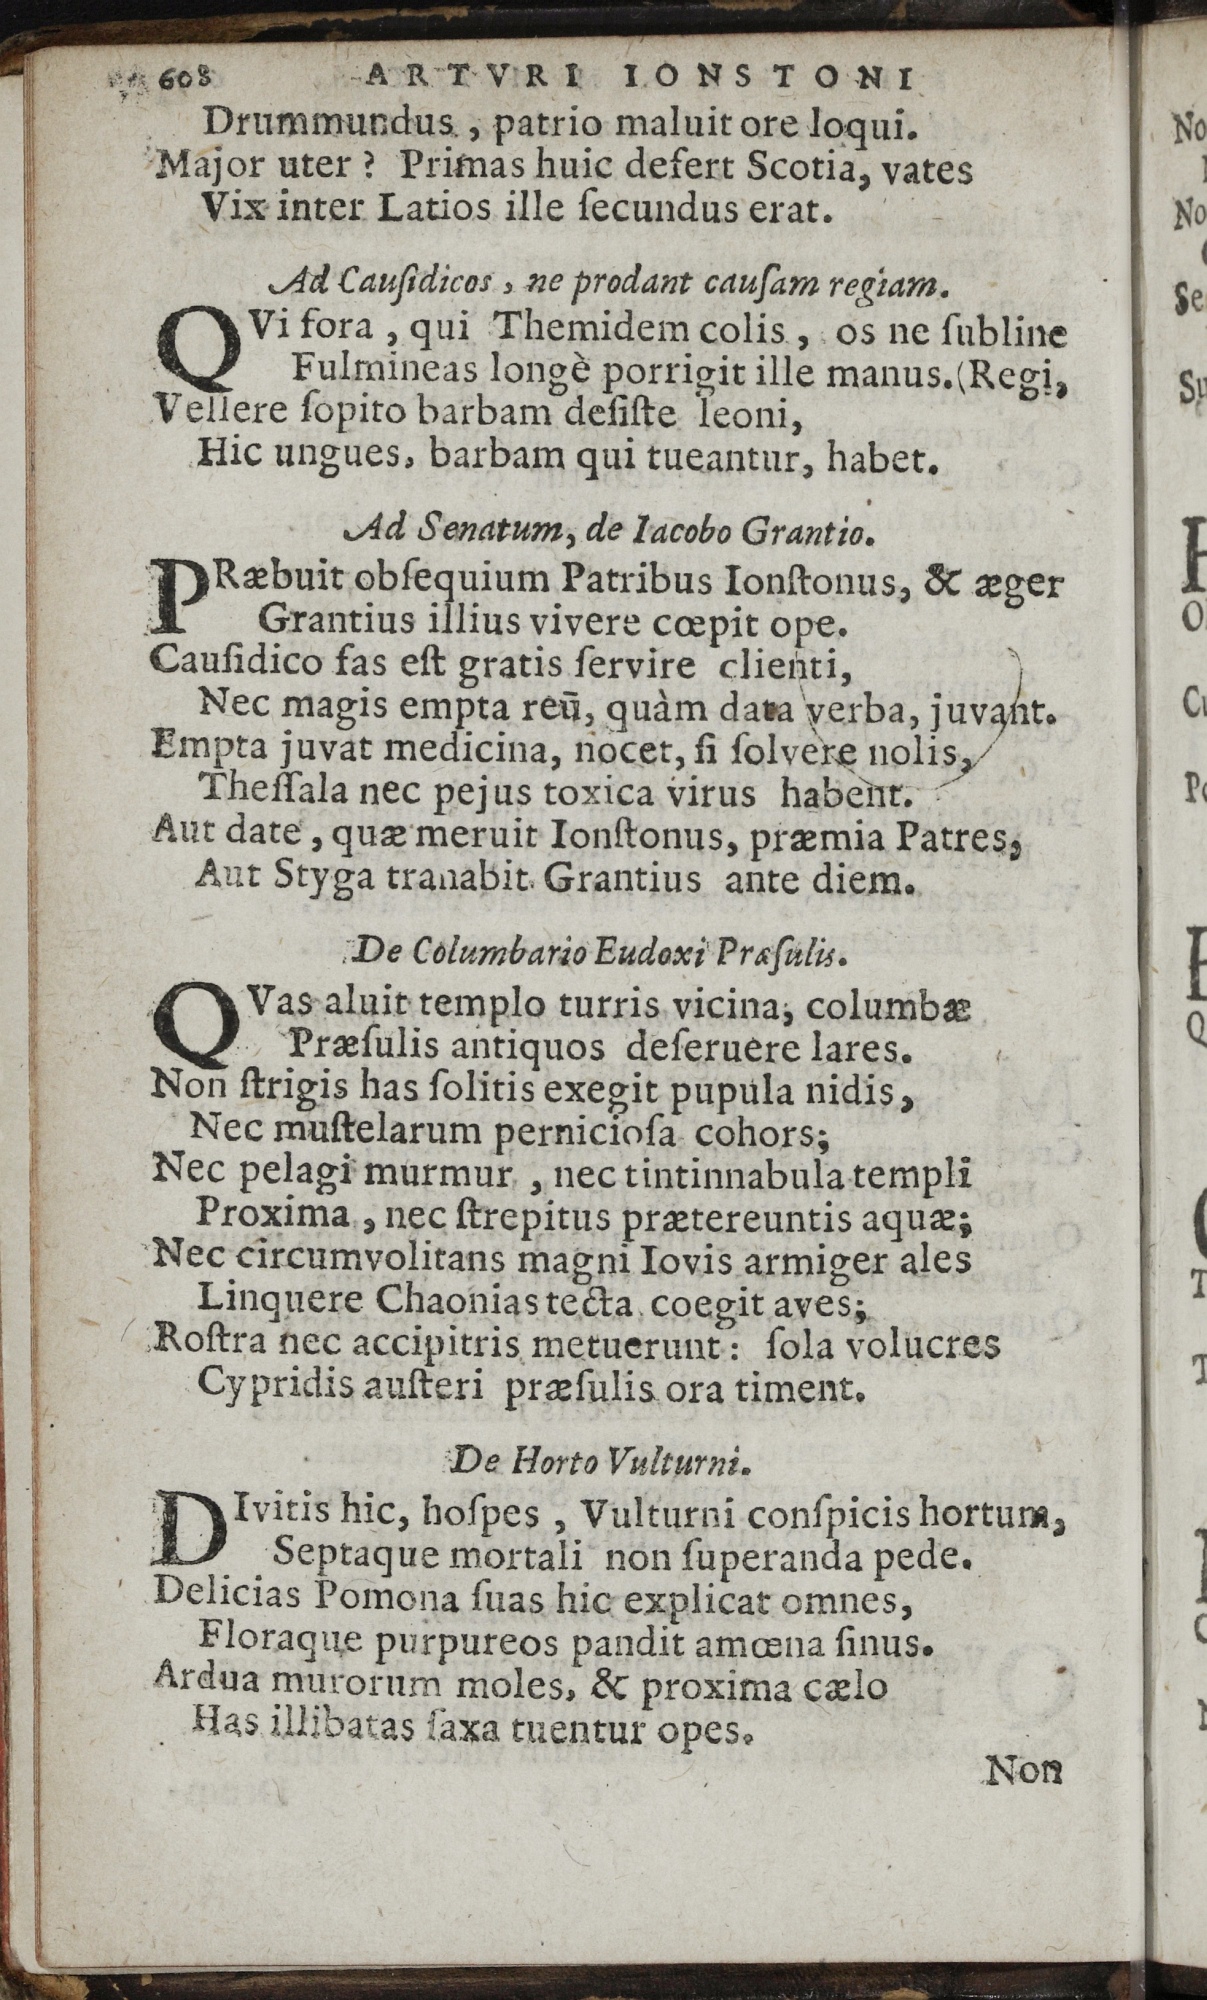 608 ARTVRI IONSTONI
Drummundus, patrio maluit ore loqui.
Major uter? Primas huic defert Scotia, vates
Vix inter Latios ille ſecundus erat.
Ad Cauſidicos, ne prodant cauſam regiam.
QVi fora, qui Themidem colis, os ne ſubline
Fulmineas longè porrigit ille manus. (Regi,
Vellere ſopito barbam deſiſte leoni,
Hic ungues, barbam qui tueantur, habet.
Ad Senatum, de Iacobo Grantio.
PRæbuit obſequium Patribus Ionſtonus, & æger
Grantius illius vivere cœpit ope.
Cauſidico fas eſt gratis ſervire clienti,
Nec magis empta reū, quàm data verba, juvant.
Empta juvat medicina, nocet, ſi ſolvere nolis,
Theſſala nec pejus toxica virus habent.
Aut date, quæ meruit Ionſtonus, præmia Patres,
Aut Styga tranabit Grantius ante diem.
De Columbario Eudoxi Præſulis.
QVas aluit templo turris vicina, columbæ
Præſulis antiquos deſeruêre lares.
Non ſtrigis has ſolitis exegit pupula nidis,
Nec muſtelarum pernicioſa cohors;
Nec pelagi murmur, nec tintinnabula templi
Proxima, nec ſtrepitus prætereuntis aquæ;
Nec circumvolitans magni Iovis armiger ales
Linquere Chaonias tecta coegit aves;
Roſtra nec accipitris metuerunt: ſola volucres
Cypridis auſteri præſulis ora timent.
De Horto Vulturni.
DIvitis hic, hoſpes, Vulturni conſpicis hortum,
Septaque mortali non ſuperanda pede.
Delicias Pomona ſuas hic explicat omnes,
Floraque purpureos pandit amœna ſinus.
Ardua murorum moles, & proxima cælo
Has illibatas ſaxa tuentur opes.
Non